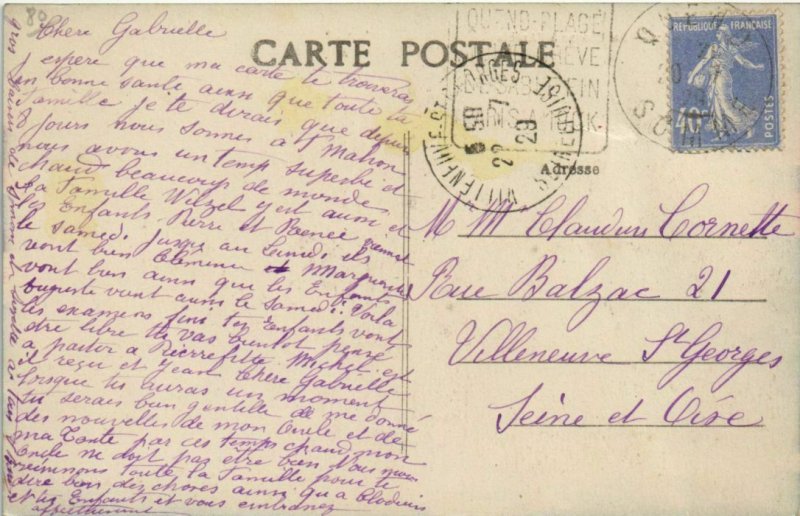 80
Chere Gabrielle
J espere que ma carte te trouveras
en bonne sante ainsi que toute ta
famille je te dirais que depuis
8 jours nous sommes a Mahon
nous avons un temps superbe et
chaud beaucoup de monde
la famille Witzel y est aussi et
les Enfants. Pierre et Renée
le Samedi. Jusqu au Lundi ils
vont bien Clemence et Marguerite
vont bien ainsi que les Enfants
Auguste vient aussi le Samedi. Voila
les examens fini tes Enfants vont
etre libre tu vas bientot pensé
a partir a Pierrefitte Michel est
il reçu et Jean Chere Gabrielle
lorsque tu auras un moment
tu serais bien gentille de me donné
des nouvelles de mon Oncle et de
ma Tante par ces temps chaud mon
Oncle ne doit pas etre bien Nous nous
reunnons toute la famille pour te
dire bien des choses ainsi qu a Claudius
et les Enfants et vous embrassez
affectueusement
CARTE POSTALE
QUEND-PLAGE
PARIS
VILLENEUVE-ST-GEORGES
SEINE ET OISE
22 7
29
QUEND
SOMME
REPUBLIQUE FRANÇAISE
40
POSTES
Adresse
M M Claudius Cornette
Rue Balzac 21
Villeneuve St Georges
Seine et Oise